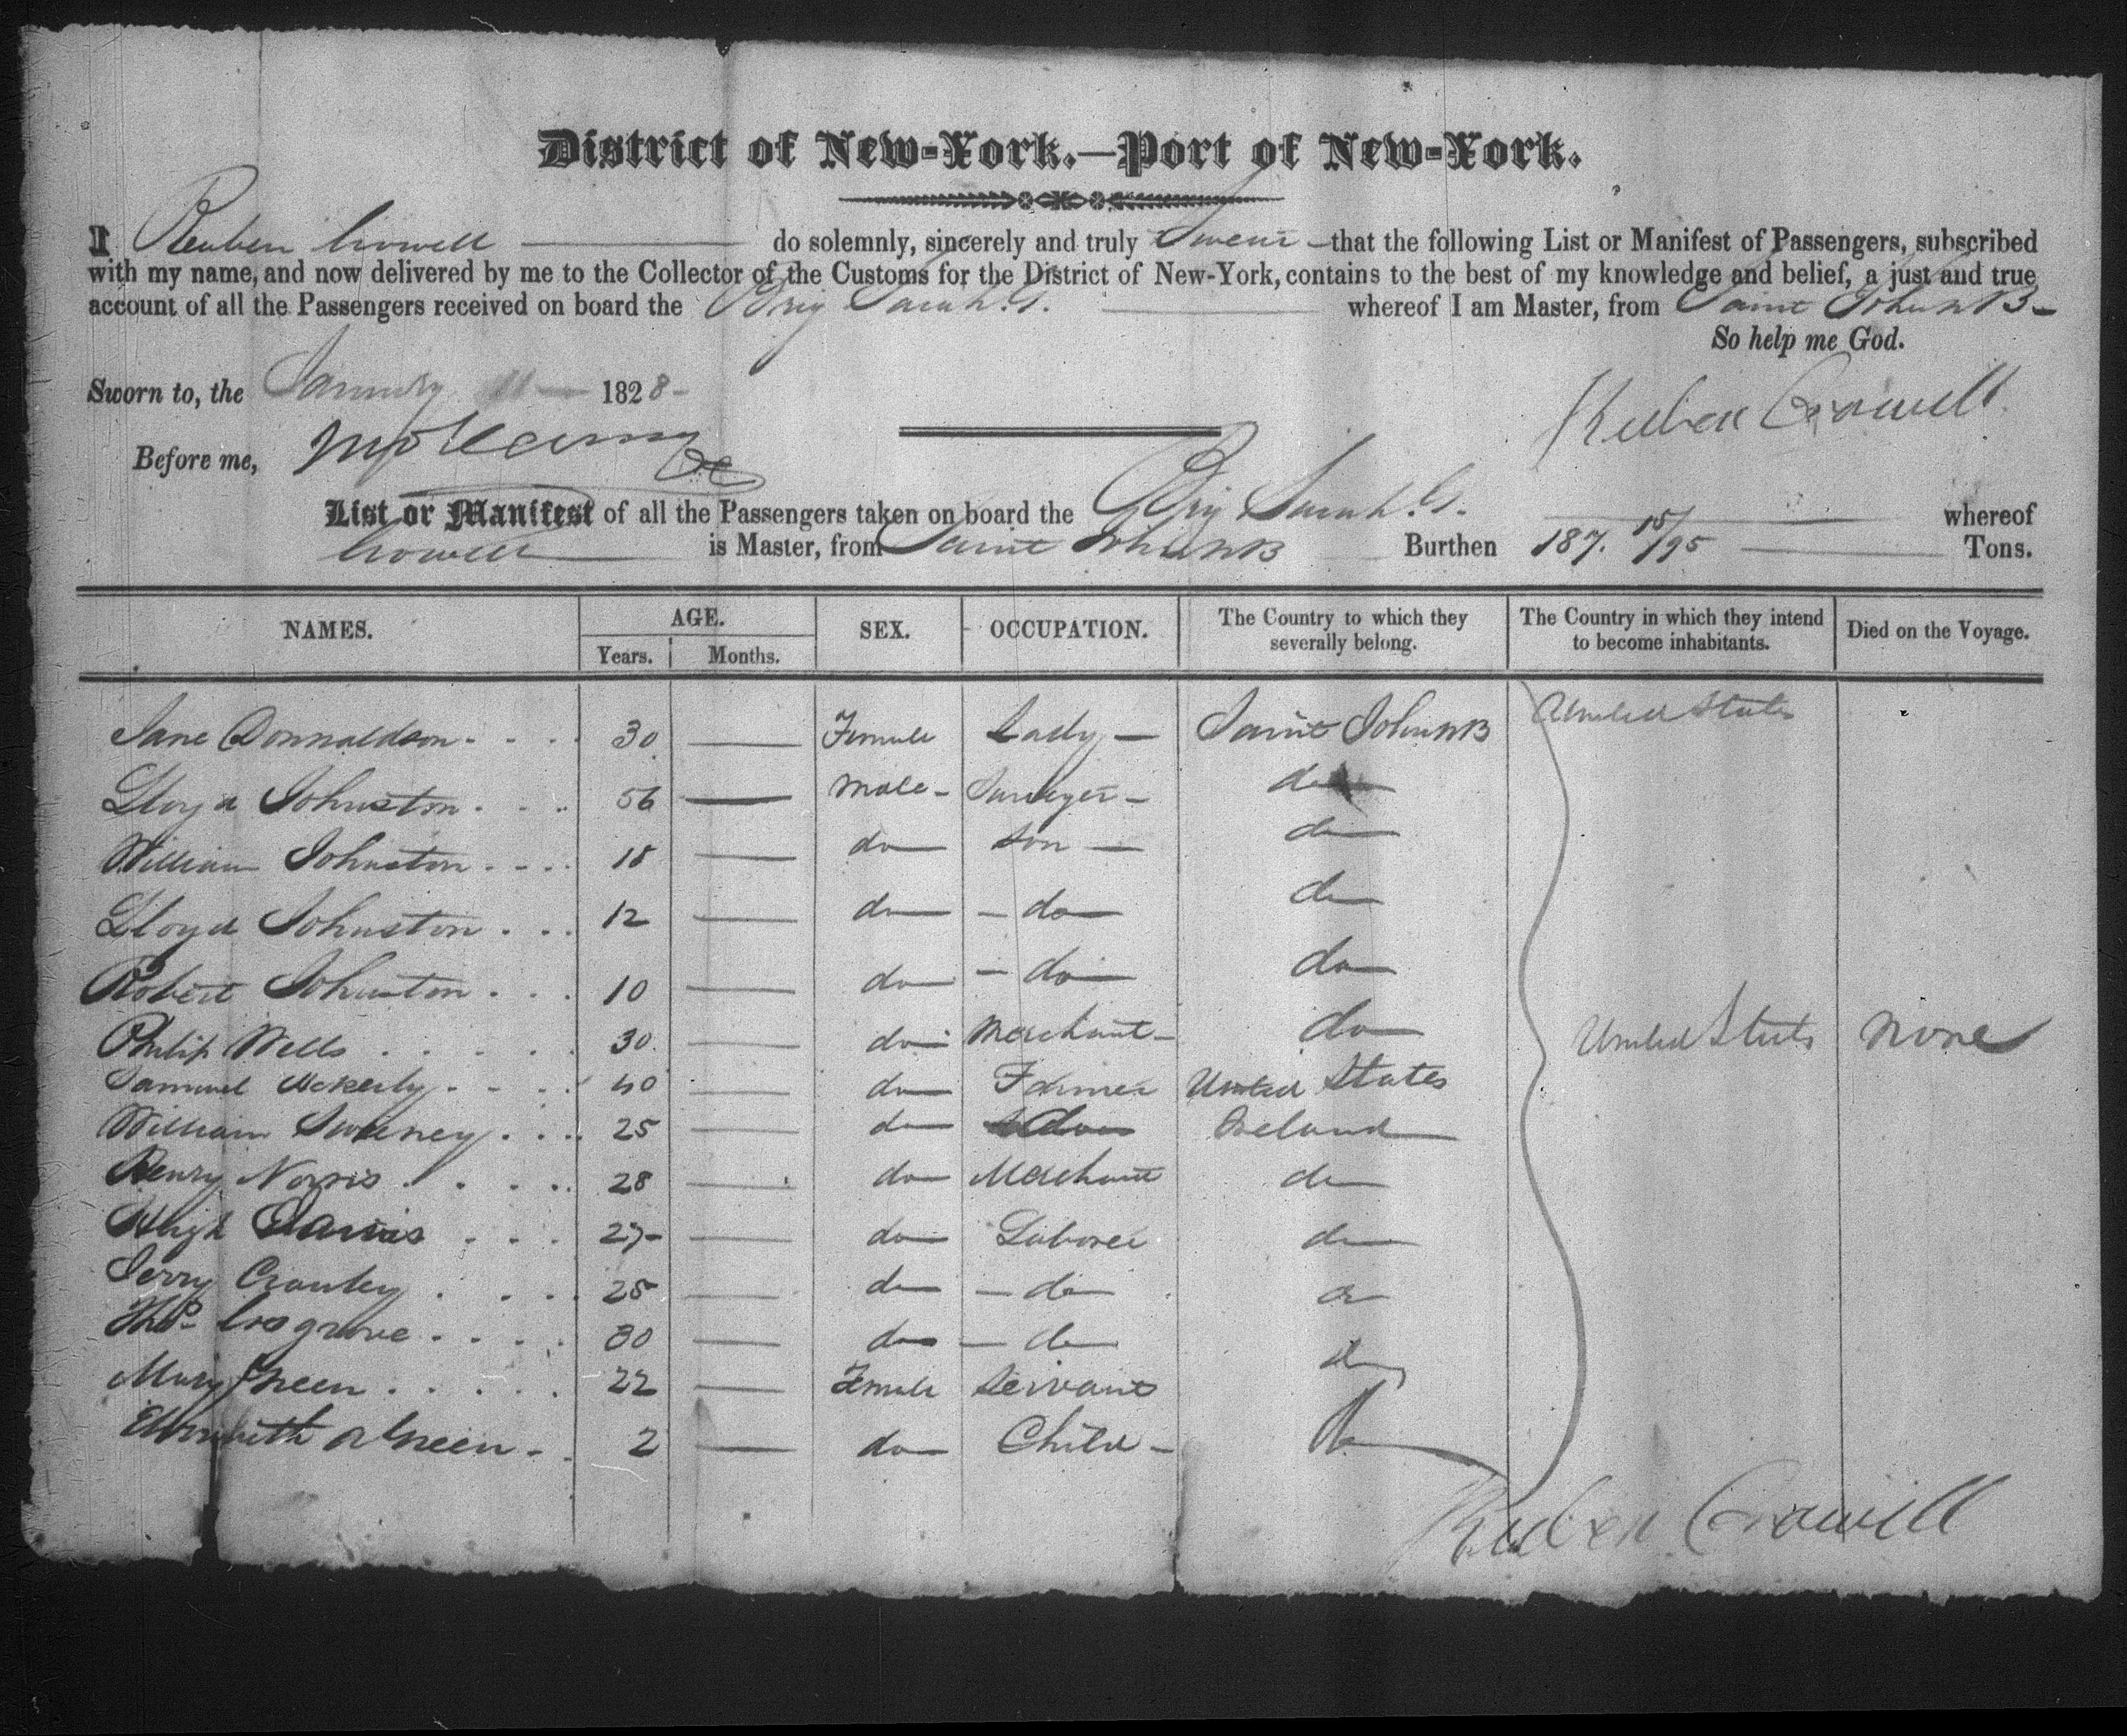 District of New-York.—Port of New-York.
I Reuben Crowell do solemnly, sincerely and truly Swear that the following List or Manifest of Passengers, subscribed
with my name, and now delivered by me to the Collector of the Customs for the District of New-York, contains to the best of my knowledge and belief, a just and true
account of all the Passengers received on board the Brig Sarah. G. whereof I am Master, from Saint John NB
So help me God.
Sworn to, the January 11 1828
Reuben Crowell
Before me,
List or Manifest of all the Passengers taken on board the Brig Sarah. G. whereof
Crowell is Master, from Saint John NB Burthen 187. 15/95 Tons.
NAMES. AGE. SEX. OCCUPATION. The Country to which they severally belong. The Country in which they intend to become inhabitants. Died on the Voyage.
Years. Months.
Jane Donnaldson 30 Female Lady Saint John NB United States
Lloyd Johnston 56 Male Surveyor do
William Johnston 18 do Son do
Lloyd Johnston 12 do do do
Robert Johnston 10 do do do
Philip Wells 30 do Merchant do United States None
Samuel 40 do Farmer United States
William Sweney 25 do do Ireland
Henry Norris 28 do Merchant do
Hugh Harris 27 do Laborer do
Jerry Crowley 25 do do do
Thos. Cosgrove 30 do do do
Mary Green 22 Female Servant do
Elizabeth A Green 2 do Child do
Reuben Crowell